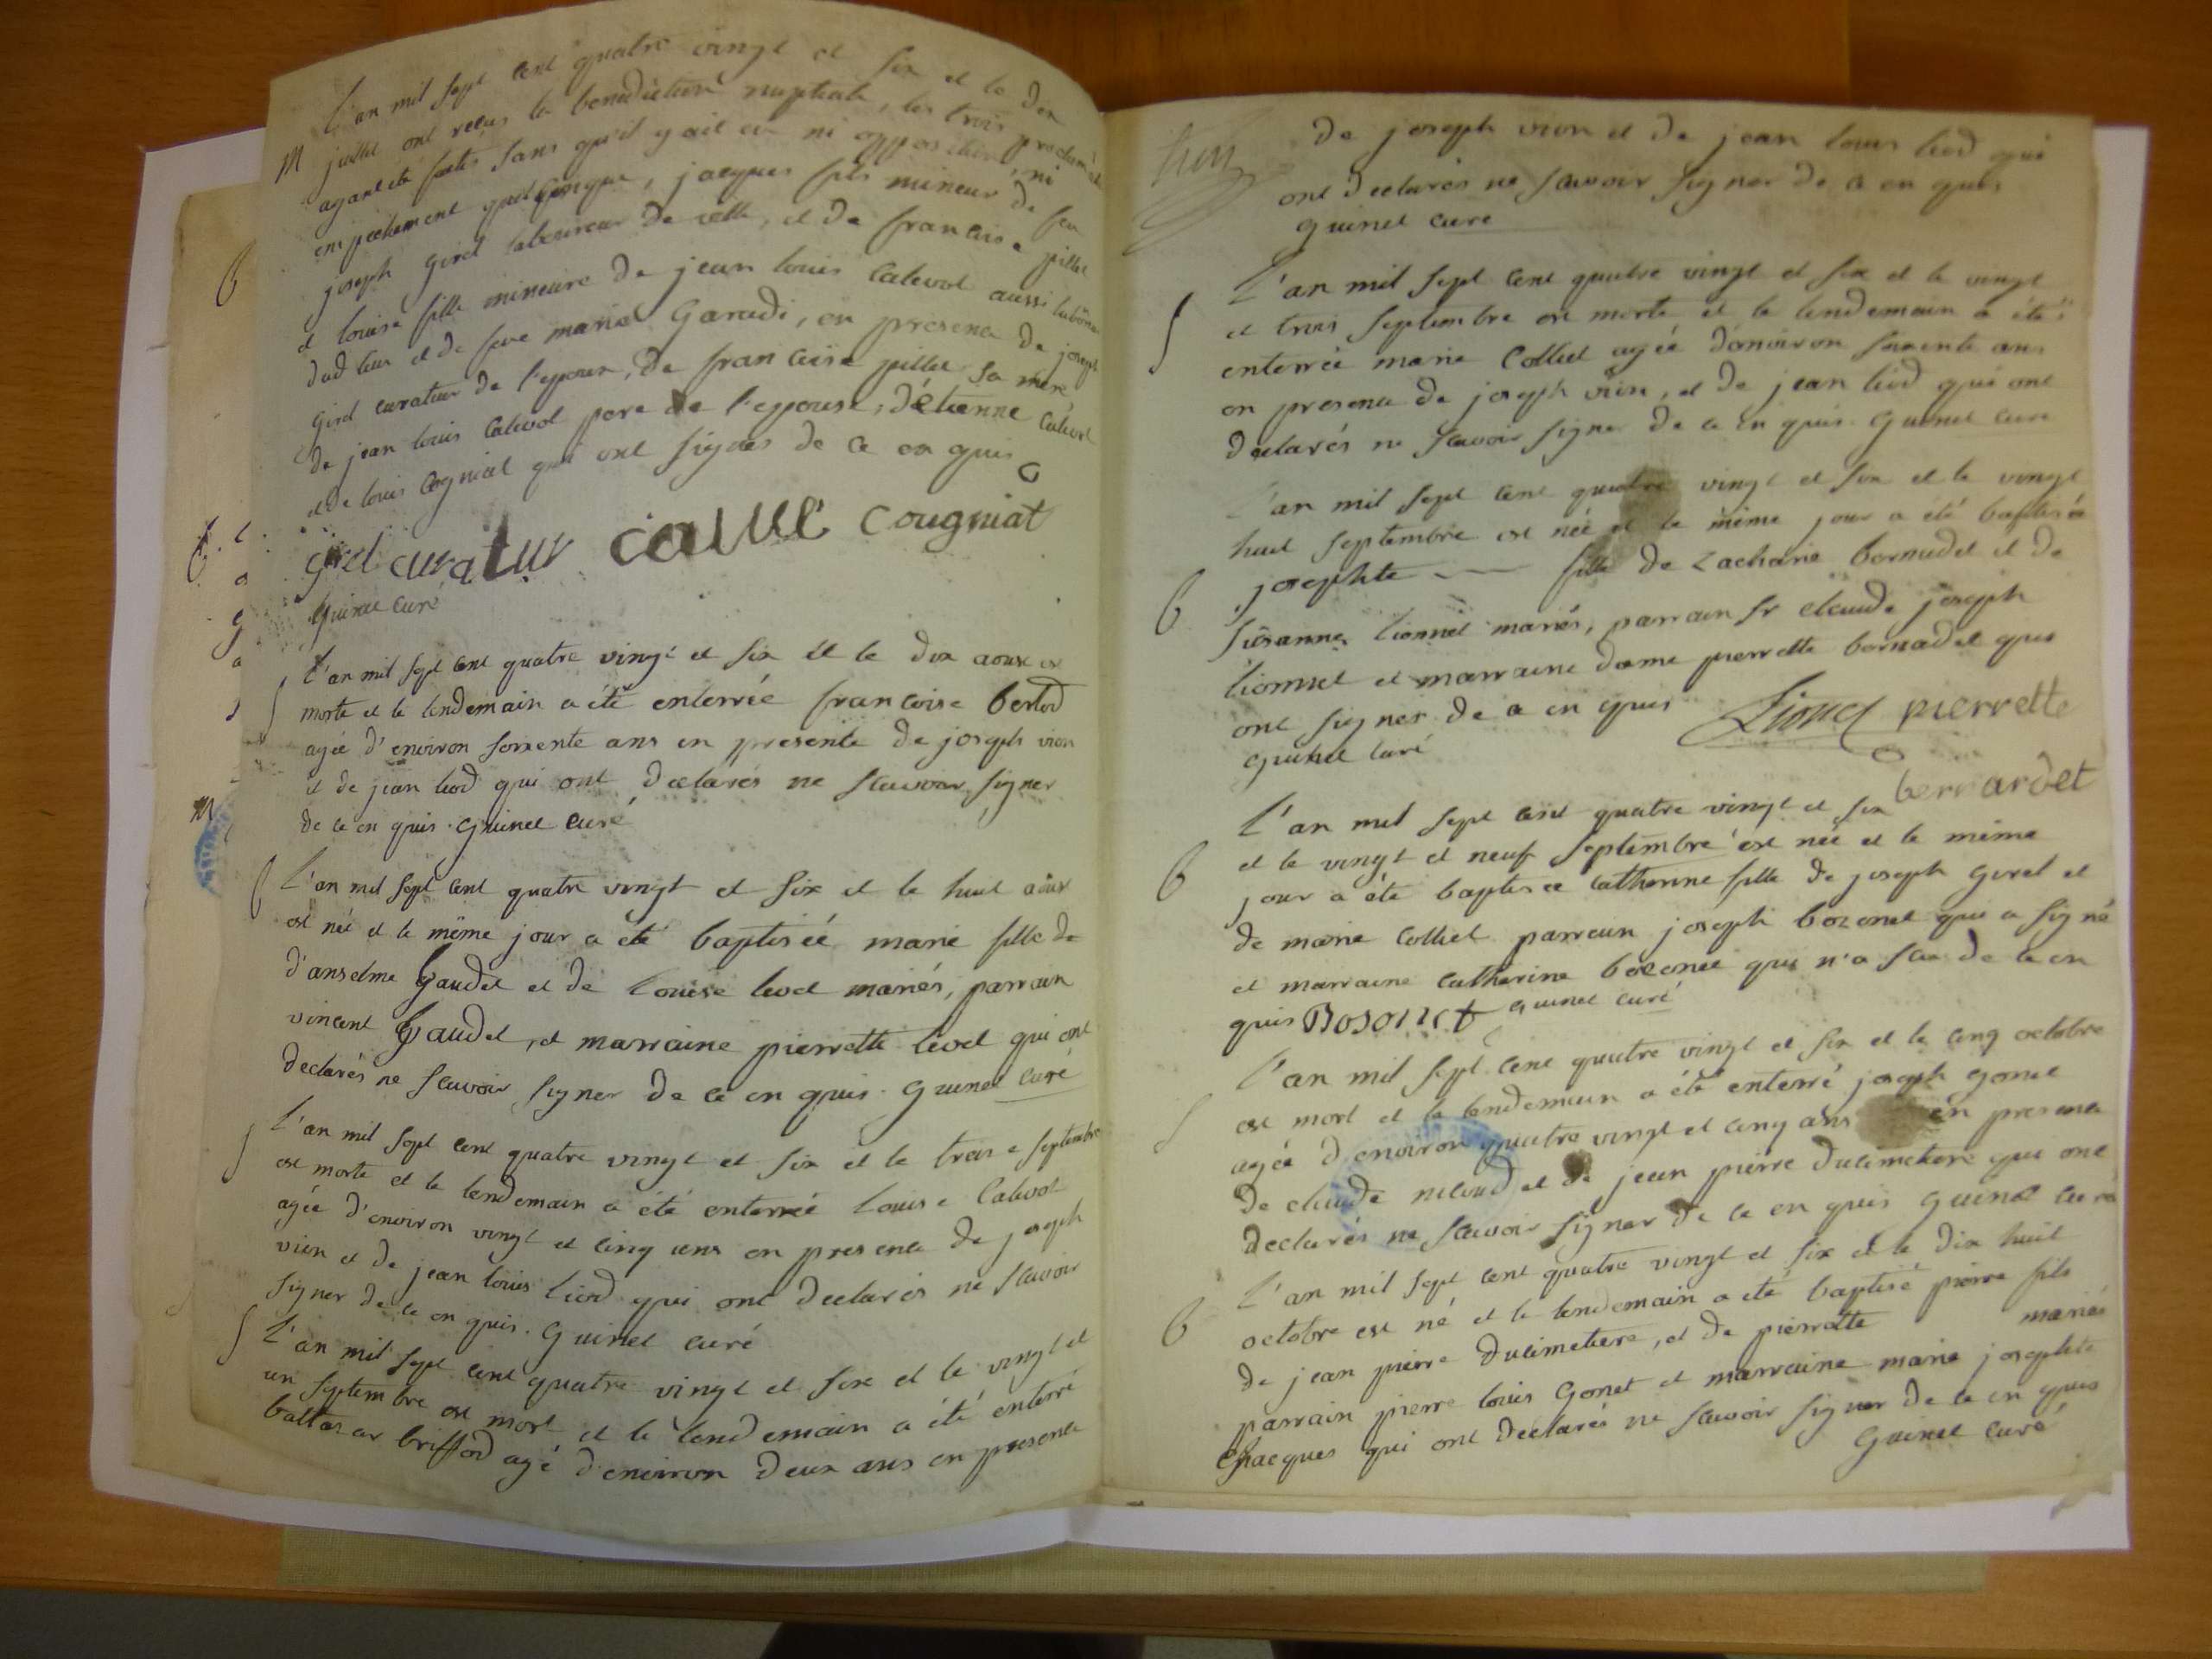 L'an mil sept cent quatre vingt et six et le dix
M juillet ont reçus la benediction nuptiale, les trois
ayant été faites sans qu'il y ait eu ni opposition, ni
empechement quelconque, jacques fils mineur de feu
joseph Girel laboureur de celle, et de francoise pillet
et louise fille mineure de jean louis Calevol aussi
dud lieu et de feue marie Garadi, en presence de joseph
Girel curateur de l'epoux, de francoise pillet sa mère
de jean louis Calevol pere de l'epouse, d'étienne Calevol
et de louis Cogniat qui ont signés de ce en quis
Girel curatur cougniat
Guinet curé
S L'an mil sept cent quatre vingt et six et le dix aoust est
morte et le lendemain a été enterrée francoise bertod
agée d'environ soixente ans en presente de joseph vion
et de jean liod qui ont declarés ne scavoir signer
de ce en quis. Guinet curé
B L'an mil sept cent quatre vingt et six et le huit aoust
est née et le même jour a été baptisée marie fille de
d'anselme Gaudet et de Louise level mariés, parrain
vincent Gaudet, et marraine pierrette level qui ont
declarés ne scavoir signer de ce en quis. Guinet curé
S L'an mil sept cent quatre vingt et six et le treise septembre
est morte et le lendemain a été enterrée Louise Calevol
agée d'environ vingt et cinq ans en presence de joseph
vion et de jean louis liod qui ont declarés ne scavoir
signer de ce en quis. Guinet curé
S L'an mil sept cent quatre vingt et six et le vingt et
un septembre est mort et le lendemain a été enterré
baltasar briffod agé d'environ deux ans en presence
de joseph vion et de jean louis liod qui
ont declarés ne scavoir signer de ce en quis
Guinet curé
S L'an mil sept cent quatre vingt et six et le vingt
et trois septembre est morte et le lendemain a été
enterrée marie Colliet agée d'environ soixente ans
en presence de joseph vion, et de jean liod qui ont
declarés ne scavoir signer de ce En quis. Guinet curé
L'an mil sept cent quatre vingt et six et le vingt
huit septembre est née et le même jour a été baptisée
B josephte fille de Zacharie bernadet et de
Susanne Lionnet mariés, parrain Sr claude joseph
Lionnet et marraine dame pierrette bernadet qui
ont signer de ce en quis Lionet pierrette
Guinet curé
bernardet
L'an mil sept cent quatre vingt et six
B et le vingt et neuf septembre est née et le même
jour a été baptisée catherine fille de joseph Girel et
de marie Colliet parrain joseph bozonet qui a signé
et marraine catherine bozonet qui n'a scu de ce en
quis Bosonet Guinet curé
L'an mil sept cent quatre vingt et six et le cinq octobre
S est mort et le lendemain a été enterré joseph Gonet
agée d'environ quatre vingt et cinq ans en presence
de claude et de jean pierre ducimetiere qui ont
declarés ne scavoir signer de ce en quis Guinet curé
L'an mil sept cent quatre vingt et six et le dix huit
B octobre est né et le lendemain a été baptisé pierre fils
de jean pierre ducimetiere, et de pierrette mariés
parrain pierre louis Gonet et marraine marie josephte
qui ont declarés ne scavoir signer de ce en quis
Guinet curé